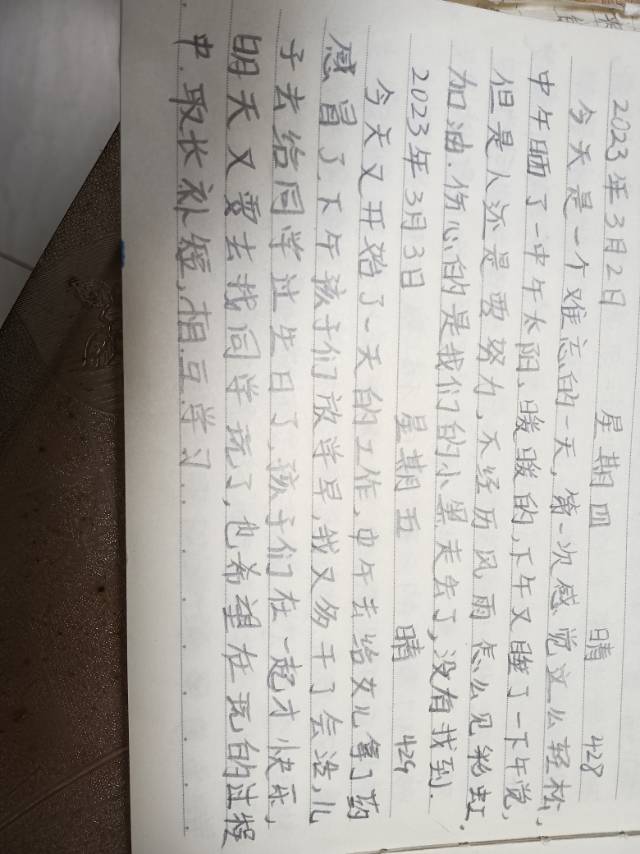 2023年3月2日 星期四 晴 428
今天是一个难忘的一天,第一次感觉这么轻松,
中午晒了一中午太阳,暖暖的,下午又睡了一下午觉,
但是人还是要努力,不经历风雨怎么见彩虹.
加油.伤心的是我们的小黑走失了,没有找到.
2023年3月3日 星期五 晴 429
今天又开始了一天的工作,中午去给女儿拿了药
感冒了.下午孩子们放学早,我又多干了会活,儿
子去给同学过生日了,孩子们在一起才快乐,
明天又要去找同学玩了,也希望在玩的过程
中.取长补短,相互学习...